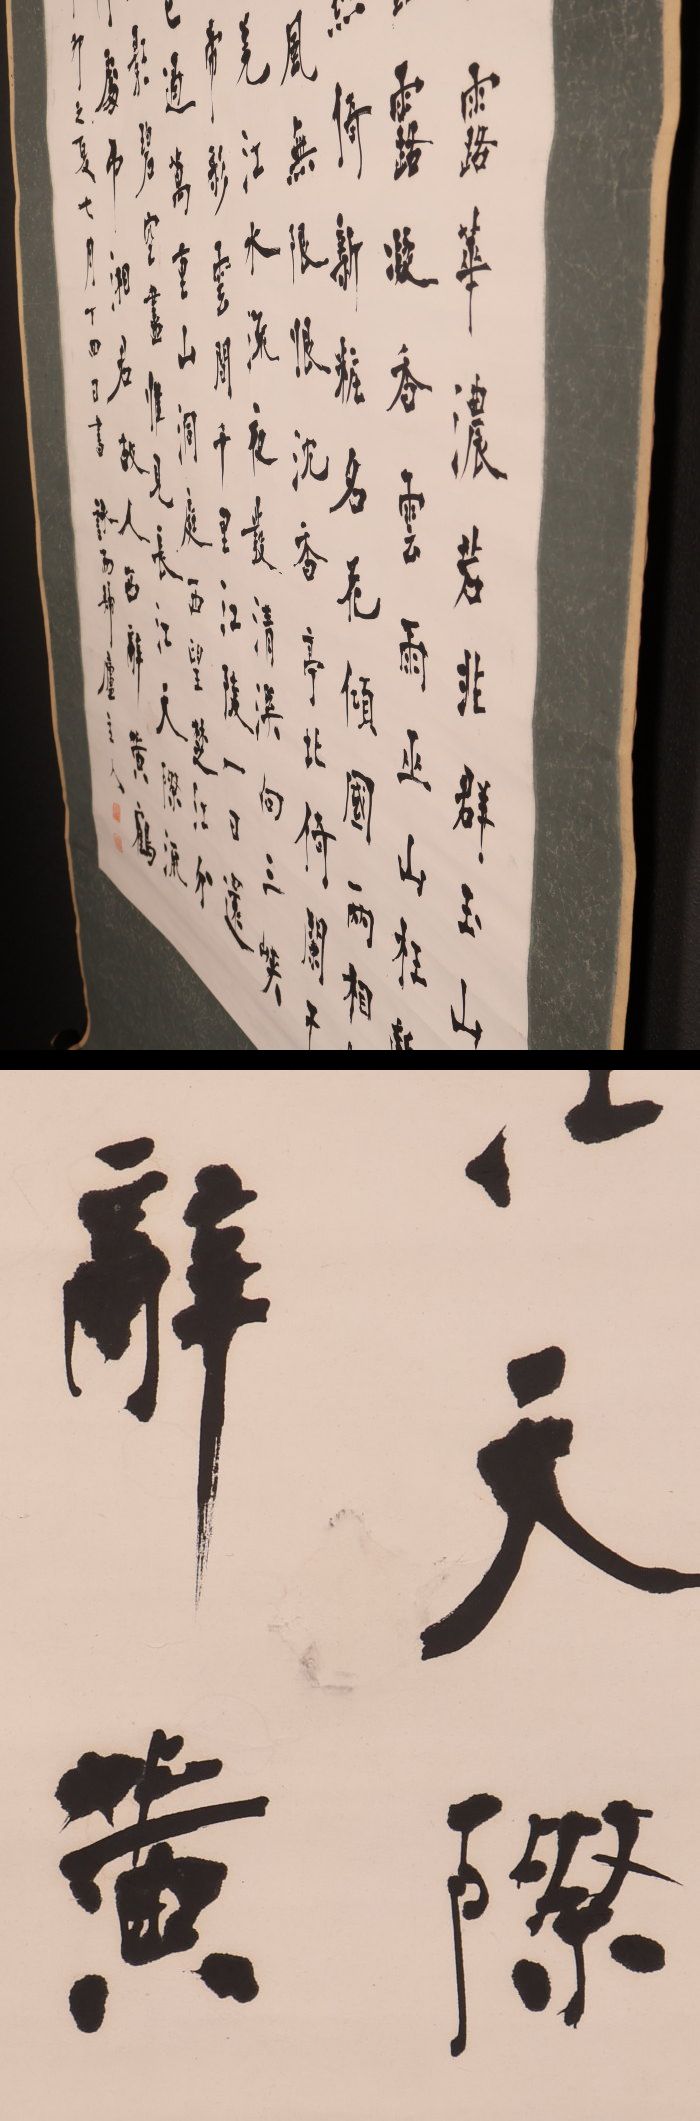 露華濃若非群玉山
露凝香雲雨巫山枉斷
倚新粧名花傾國兩相
風無限恨沈香亭北倚闌干
江水流夜發清溪向三峽
帝彩雲間千里江陵一日還
已過萬重山洞庭西望楚江分
影碧空盡惟見長江天際流
處弔湘君故人西辭黃鶴
卯之夏七月十四日書 廬主人
天際
辭黃